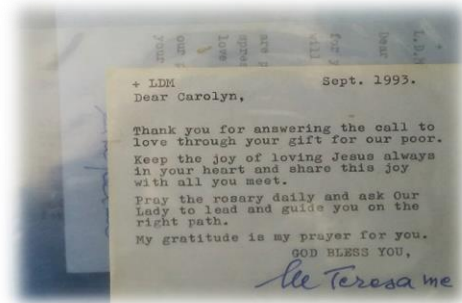 + LDM Sept. 1993.
Dear Carolyn,
Thank you for answering the call to
love through your gift for our poor.
Keep the joy of loving Jesus always
in your heart and share this joy
with all you meet.
Pray the rosary daily and ask Our
Lady to lead and guide you on the
right path.
My gratitude is my prayer for you.
GOD BLESS YOU,
Teresa me
L.D.M
Dear
for
will
are
spre
love
our p
your